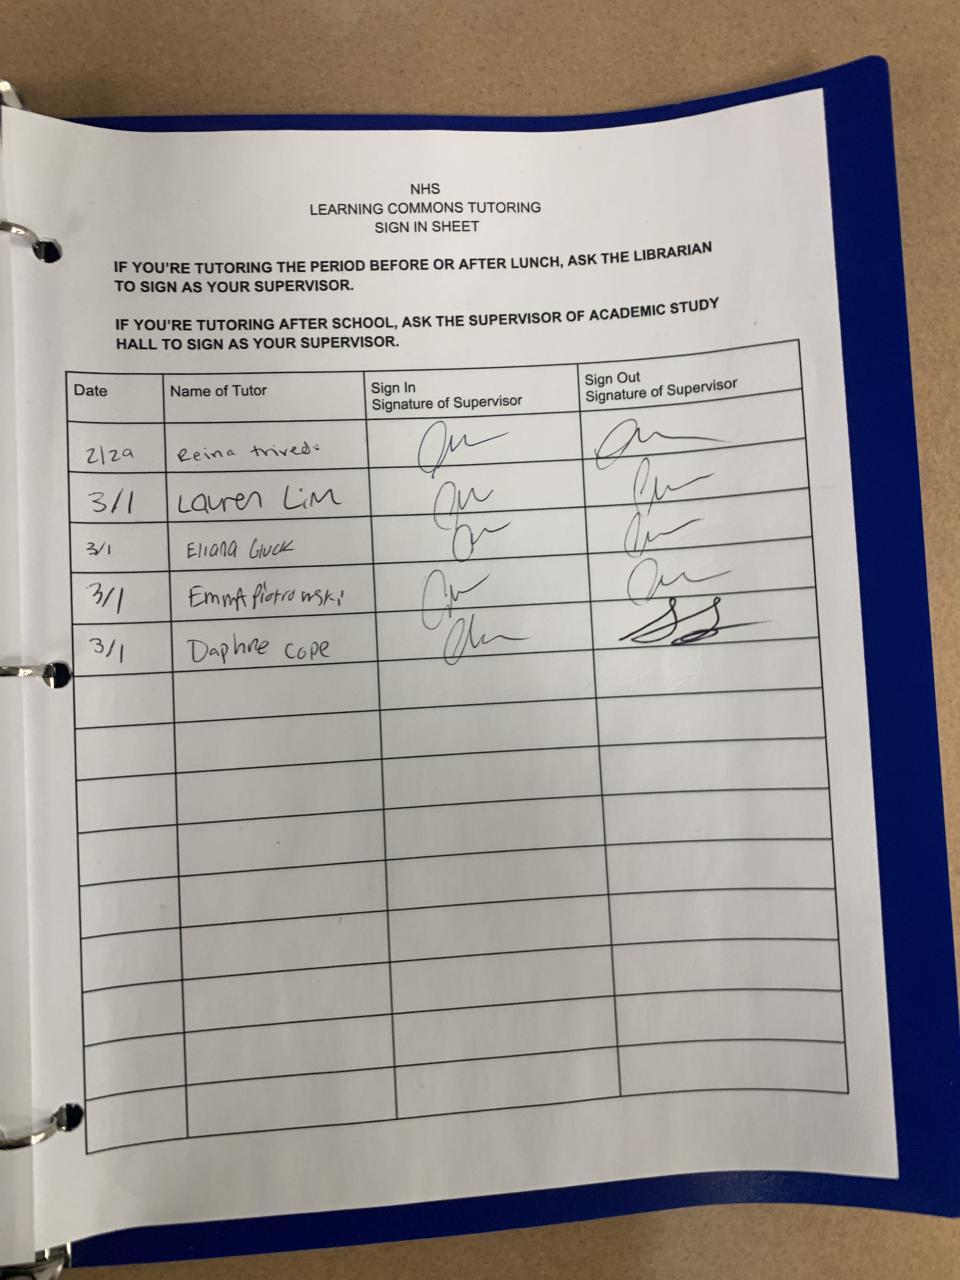 NHS
LEARNING COMMONS TUTORING
SIGN IN SHEET
IF YOU'RE TUTORING THE PERIOD BEFORE OR AFTER LUNCH, ASK THE LIBRARIAN
TO SIGN AS YOUR SUPERVISOR.
IF YOU'RE TUTORING AFTER SCHOOL, ASK THE SUPERVISOR OF ACADEMIC STUDY
HALL TO SIGN AS YOUR SUPERVISOR.
Date Name of Tutor Sign In Sign Out
Signature of Supervisor Signature of Supervisor
2/29 Reina trivedi
3/1 Lauren Lim
3/1 Eliana Gluck
3/1 Emma Piotrowski
3/1 Daphne cope